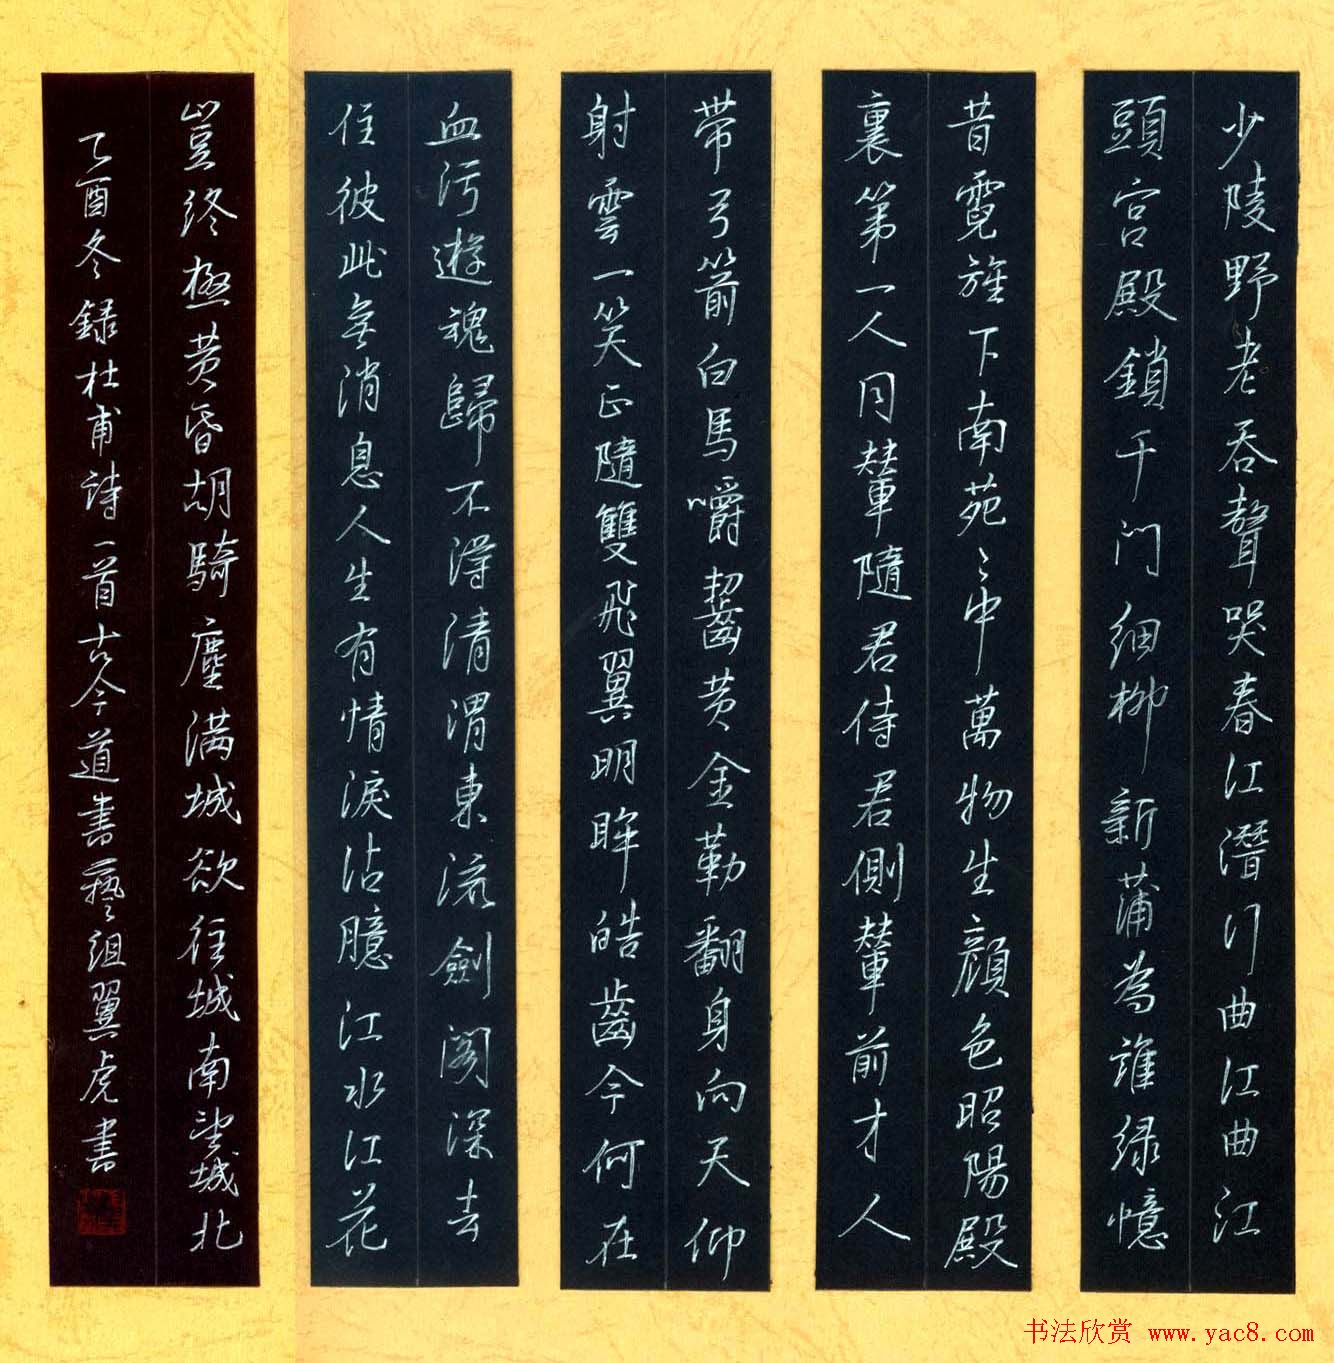 少陵野老吞聲哭春江潛行曲江曲江
頭宮殿鎖千門細柳新蒲為誰緑憶
昔霓旌下南苑〻中萬物生顔色昭陽殿
裏第一人同輦隨君侍君側輦前才人
带弓箭白馬嚼齧黄金勒翻身向天仰
射雲一笑正隨雙飛翼明眸皓齒今何在
血污遊魂歸不得清渭東流劍阁深去
住彼此無消息人生有情淚沾臆江水江花
豈終極黄昏胡騎塵满城欲往城南望城北
乙酉冬録杜甫詩一首古今道書藝組翼虎書
书法欣赏 www.yac8.com